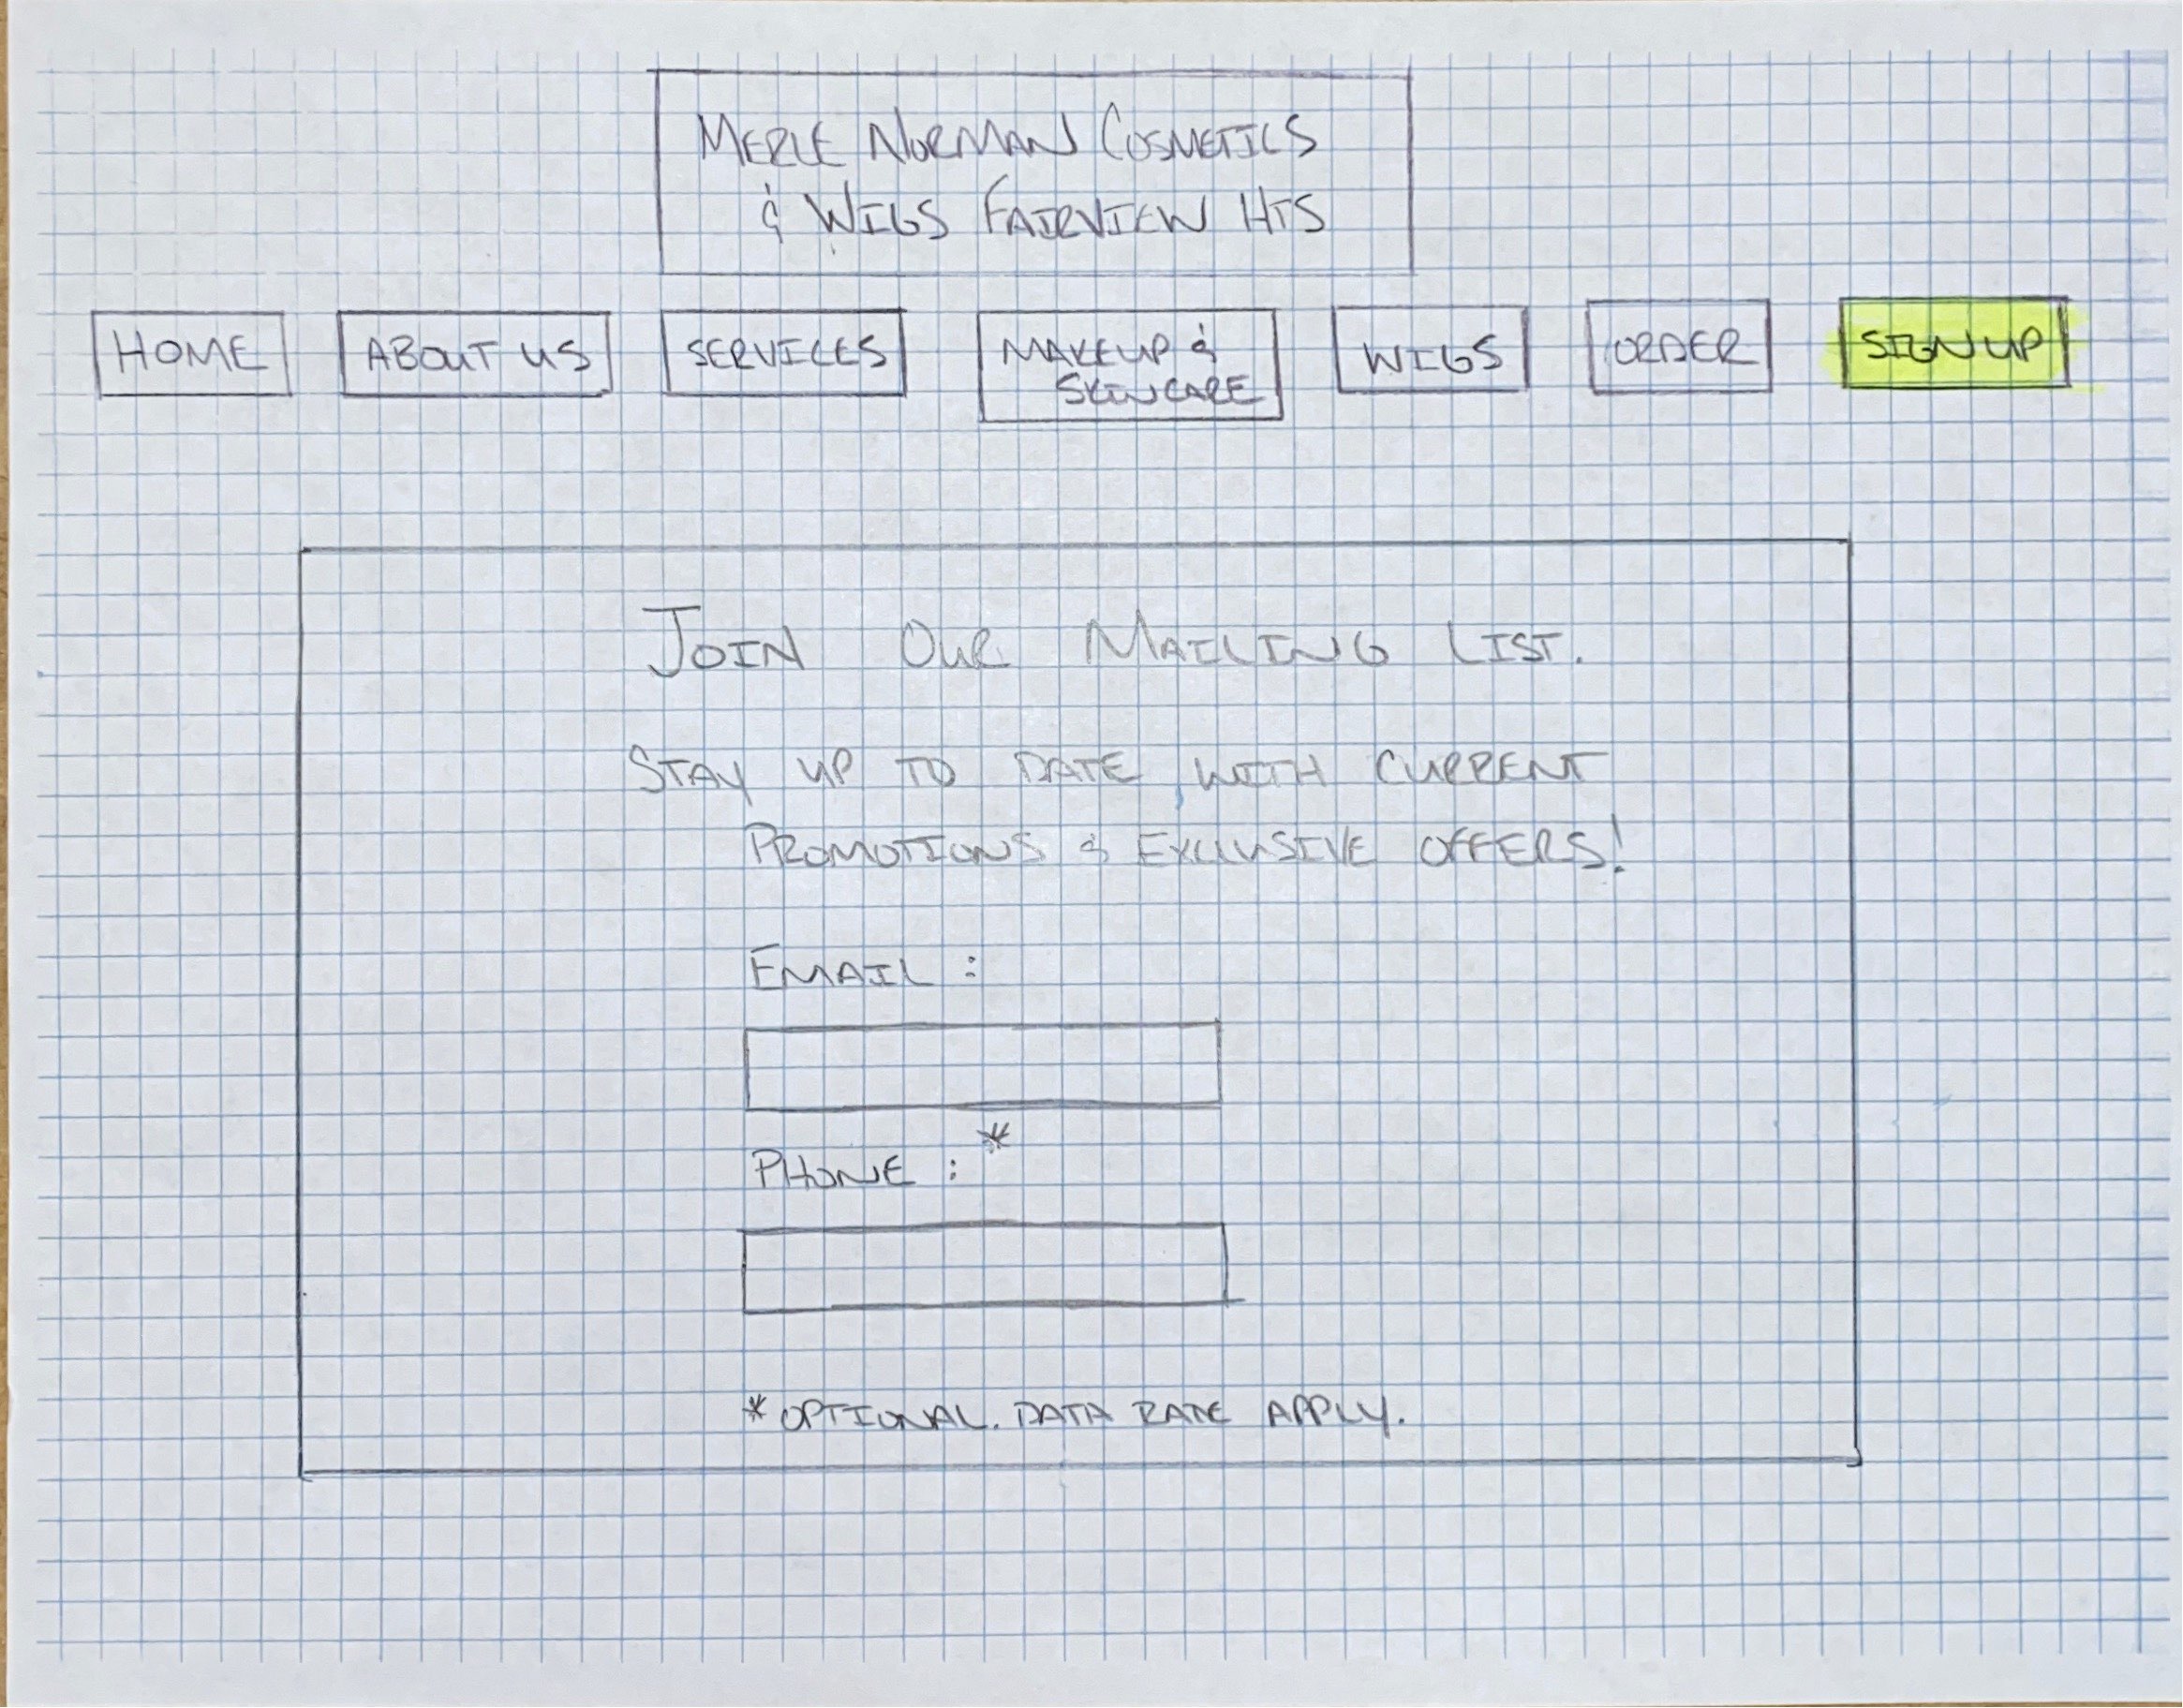 MERLE NORMAN COSMETICS
& WIGS FAIRVIEW HTS
HOME ABOUT US SERVICES MAKEUP & SKINCARE WIGS ORDER SIGN UP
JOIN OUR MAILING LIST.
STAY UP TO DATE WITH CURRENT
PROMOTIONS & EXCLUSIVE OFFERS!
EMAIL :
PHONE : *
* OPTIONAL. DATA RATE APPLY.